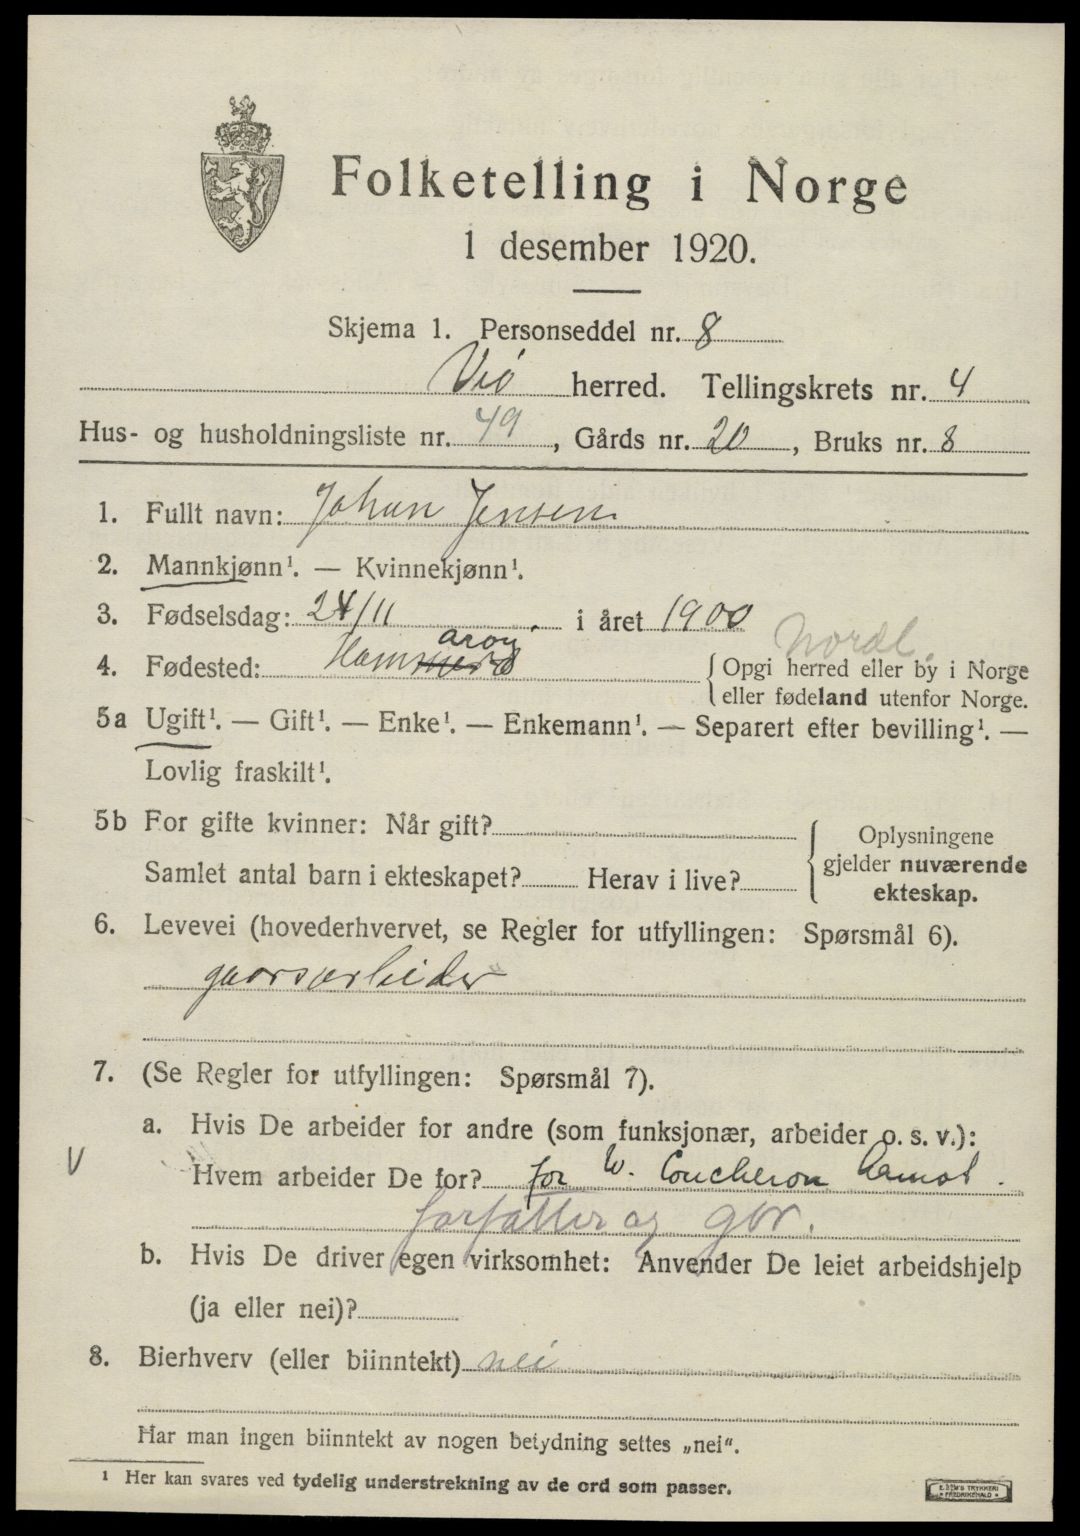 Folketelling i Norge
1 desember 1920.
Skjema 1. Personseddel nr. 8
Veö herred. Tellingskrets nr. 4
Hus- og husholdningsliste nr. 49, Gårds nr. 20, Bruks nr. 8
1. Fullt navn: Johan Jensen
2. Mannkjønn¹. — Kvinnekjønn¹.
3. Fødselsdag: 24/11 i året 1900
4. Fødested: Hammarøy Nordl.
Opgi herred eller by i Norge
eller fødeland utenfor Norge.
5a Ugift¹. — Gift¹. — Enke¹. — Enkemann¹. — Separert efter bevilling¹. —
Lovlig fraskilt¹.
5b For gifte kvinner: Når gift?
Samlet antal barn i ekteskapet? Herav i live?
Oplysningene
gjelder nuværende
ekteskap.
6. Levevei (hovederhvervet, se Regler for utfyllingen: Spørsmål 6).
gaarsarbeider
7. (Se Regler for utfyllingen: Spørsmål 7).
a. Hvis De arbeider for andre (som funksjonær, arbeider o. s. v.):
V
Hvem arbeider De for? for W. Coucheron Aamot.
forfatter og gbr.
b. Hvis De driver egen virksomhet: Anvender De leiet arbeidshjelp
(ja eller nei)?
8. Bierhverv (eller biinntekt) nei
Har man ingen biinntekt av nogen betydning settes „nei".
¹ Her kan svares ved tydelig understrekning av de ord som passer.
E. SEM'S TRYKKERI
FREDRIKSHALD